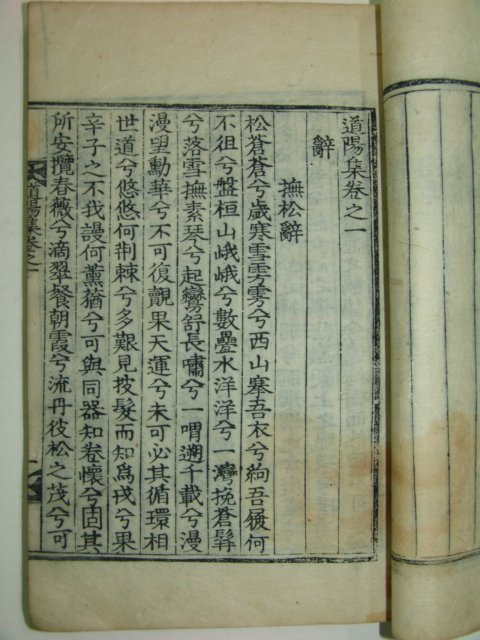 道陽集卷之一
辭
撫松辭
松蒼蒼兮歲寒雪雱雱兮西山搴吾衣兮絇吾屨何
不徂兮盤桓山峨峨兮數疊水洋洋兮一灣挽蒼髥
兮落雪撫素琴兮起鸞舒長嘯兮一喟遡千載兮漫
漫望勳華兮不可復覿果天運兮未可必其循環相
世道兮悠悠何荆棘兮多艱見披髮而知爲戎兮果
辛子之不我謾何薰蕕兮可與同器知卷懷兮固其
所安攬春薇兮滴翠餐朝霞兮流丹彼松之茂兮可
道陽集卷之一
一